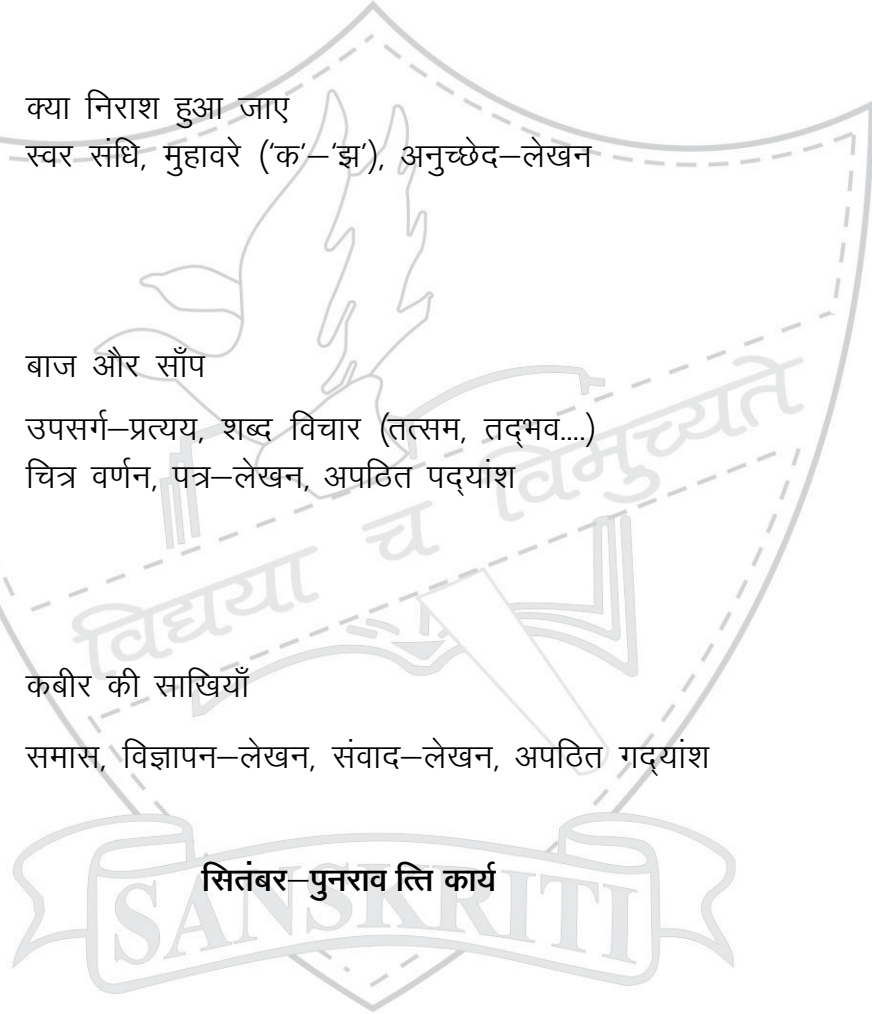 क्या निराश हुआ जाए
स्वर संधि, मुहावरे (‘क’–‘झ’), अनुच्छेद–लेखन
बाज और साँप
उपसर्ग–प्रत्यय, शब्द विचार (तत्सम, तद्‌भव....)
चित्र वर्णन, पत्र–लेखन, अपठित पद्‌यांश
विद्यया च विमुच्यते
कबीर की साखियाँ
समास, विज्ञापन–लेखन, संवाद–लेखन, अपठित गद्‌यांश
सितंबर–पुनराव त्ति कार्य
SANSKRITI